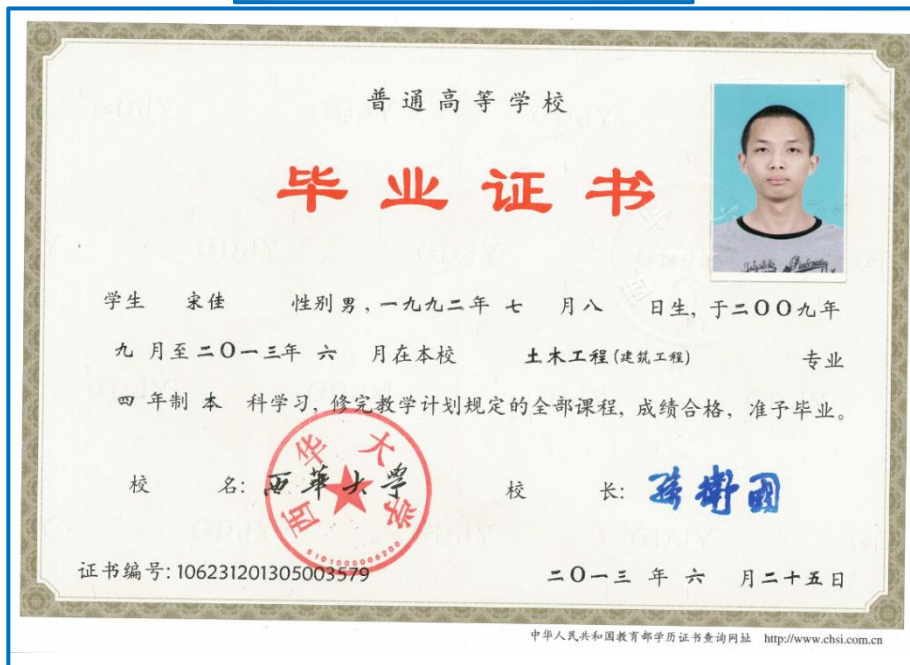 普通高等学校
毕业证书
学生 宋佳 性别男,一九九二年 七 月八 日生,于二〇〇九年
九 月至二〇一三年 六 月在本校 土木工程(建筑工程) 专业
四 年制 本 科学习,修完教学计划规定的全部课程,成绩合格,准予毕业。
校 名:西華大学 校 长:孫衛國
西华大学
5101000000200
证书编号:106231201305003579 二〇一三 年 六 月二十五日
中华人民共和国教育部学历证书查询网址 http://www.chsi.com.cn